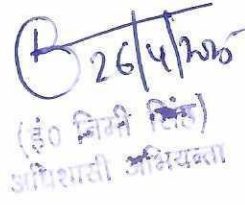 26/4/2025
(इं० निमी सिंह)
अधिशासी अभियन्ता